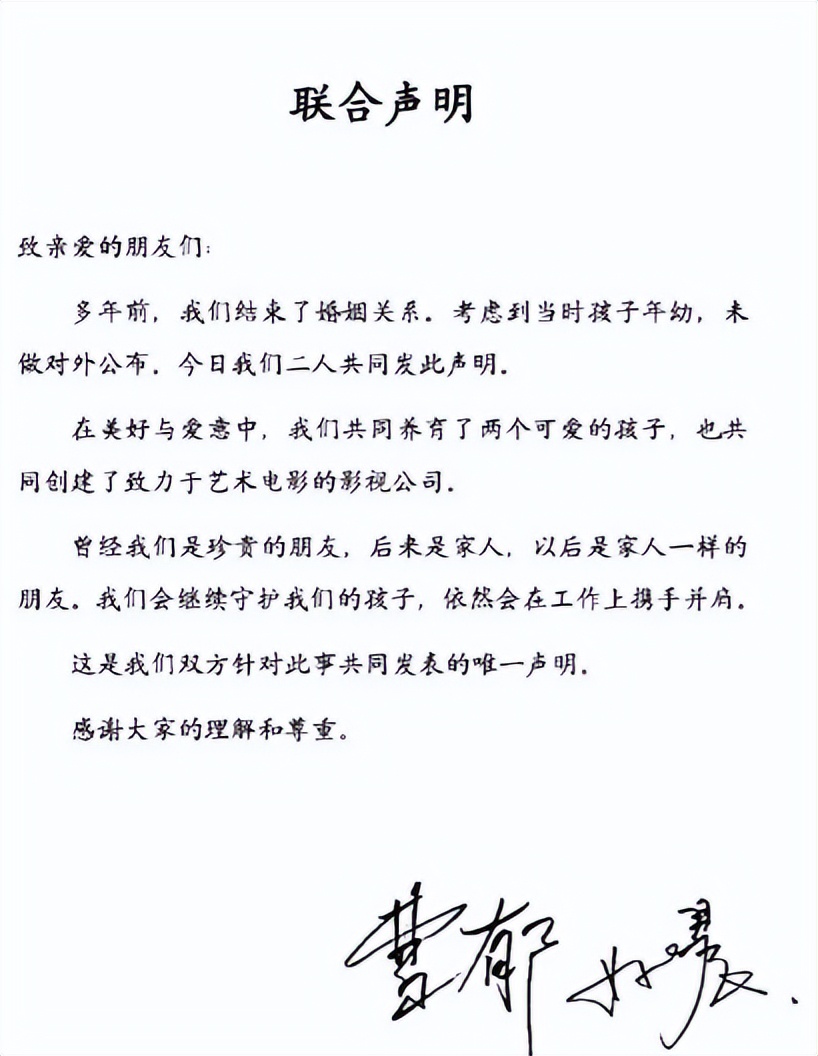 联合声明
致亲爱的朋友们：
多年前，我们结束了婚姻关系。考虑到当时孩子年幼，未
做对外公布。今日我们二人共同发此声明。
在美好与爱意中，我们共同养育了两个可爱的孩子，也共
同创建了致力于艺术电影的影视公司。
曾经我们是珍贵的朋友，后来是家人，以后是家人一样的
朋友。我们会继续守护我们的孩子，依然会在工作上携手并肩。
这是我们双方针对此事共同发表的唯一声明。
感谢大家的理解和尊重。
曹郁